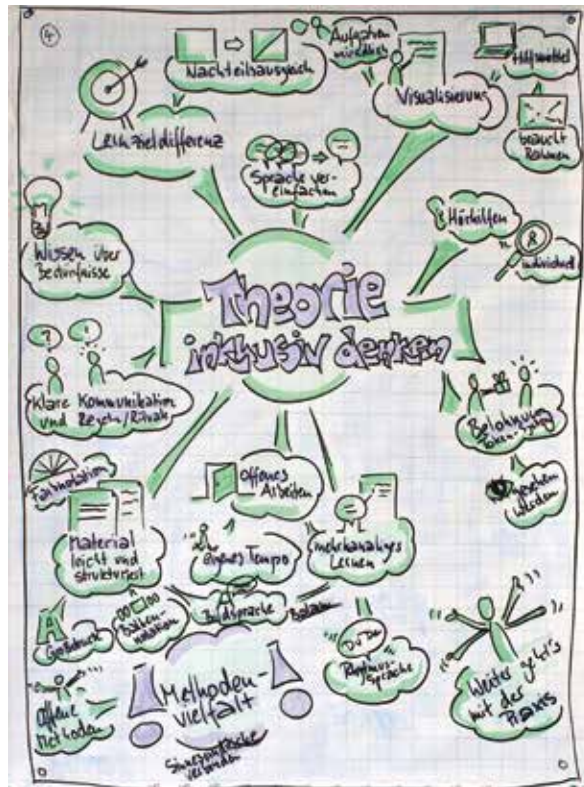 4
Nachteilsausgleich
Aufgaben
mündlich
Visualisierung
Hilfsmittel
braucht
Rahmen
Lernzieldifferenz
Sprache ver-
einfachen
Hörhilfen
individuell
Wissen über
Bedürfnisse
Theorie
inklusiv denken
? !
Klare Kommunikation
und Regeln/Rituale
Belohnung
gesehen
werden
Farbnotation
Material
leicht und
strukturiert
Offenes
Arbeiten
eigenes Tempo
mehrkanaliges
Lernen
A
Großdruck
Balken-
notation
Bildsprache
Balance
Du Da
Rhythmus-
sprache
Offene
Methoden
Methoden-
vielfalt
Weiter geht's
mit der
Praxis